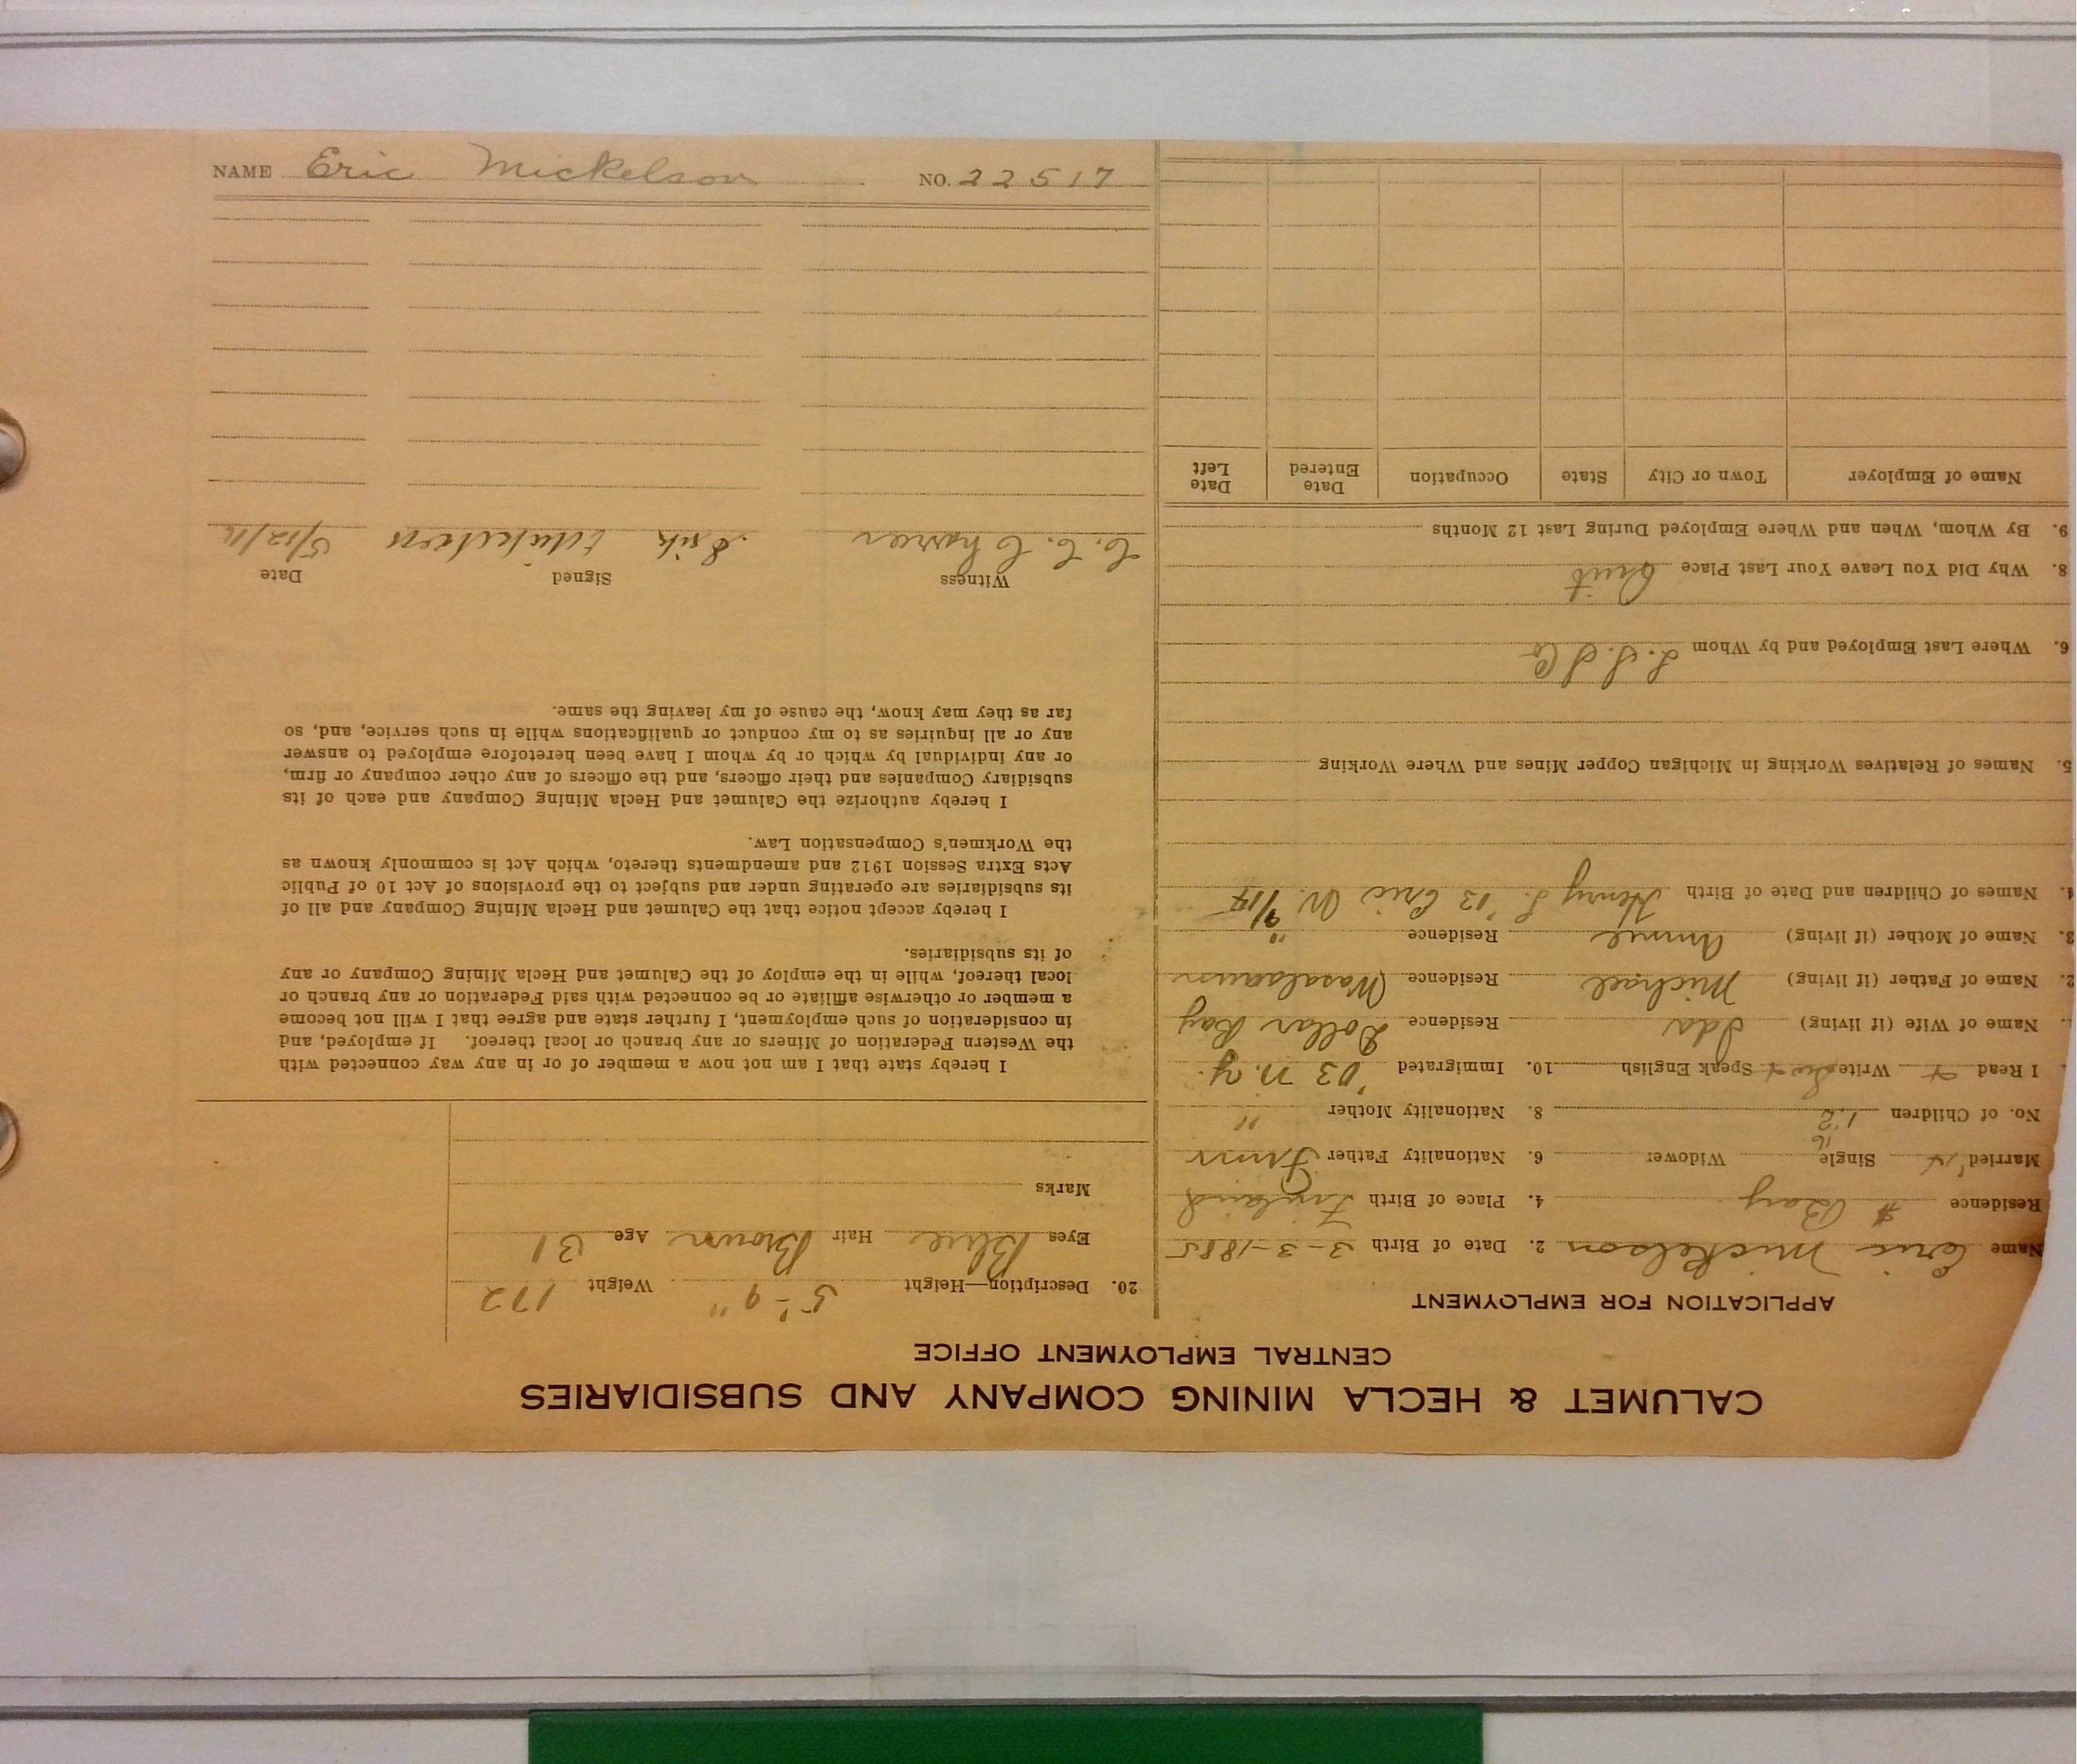 CALUMET & HECLA MINING COMPANY AND SUBSIDIARIES
CENTRAL EMPLOYMENT OFFICE
APPLICATION FOR EMPLOYMENT
Name Eric Mickelson 2. Date of Birth 3-3-1885
Residence $ Bay 4. Place of Birth Finland
Married Single Widower 6. Nationality Father Finn
No. of Children 2 8. Nationality Mother "
I Read Write Speak English 10. Immigrated '03 N.Y.
Name of Wife (if living) Ida Residence Dollar Bay
2. Name of Father (if living) Michael Residence
3. Name of Mother (if living) Annie Residence "
4. Names of Children and Date of Birth Henry '13 Eric
5. Names of Relatives Working in Michigan Copper Mines and Where Working
6. Where Last Employed and by Whom
8. Why Did You Leave Your Last Place Quit
9. By Whom, When and Where Employed During Last 12 Months
Name of Employer Town or City State Occupation Date Entered Date Left
20. Description—Height 5'-9" Weight 172
Eyes Blue Hair Brown Age 31
Marks
I hereby state that I am not now a member of or in any way connected with
the Western Federation of Miners or any branch or local thereof. If employed, and
in consideration of such employment, I further state and agree that I will not become
a member or otherwise affiliate or be connected with said Federation or any branch or
local thereof, while in the employ of the Calumet and Hecla Mining Company or any
of its subsidiaries.
I hereby accept notice that the Calumet and Hecla Mining Company and all of
its subsidiaries are operating under and subject to the provisions of Act 10 of Public
Acts Extra Session 1912 and amendments thereto, which Act is commonly known as
the Workmen's Compensation Law.
I hereby authorize the Calumet and Hecla Mining Company and each of its
subsidiary Companies and their officers, and the officers of any other company or firm,
or any individual by which or by whom I have been heretofore employed to answer
any or all inquiries as to my conduct or qualifications while in such service, and, so
far as they may know, the cause of my leaving the same.
Witness Signed Date
C. C. Erik
NAME Eric Mickelson NO. 22517